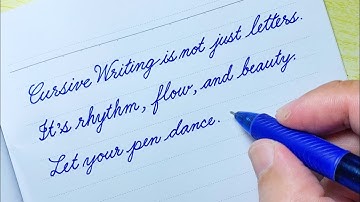 Cursive Writing is not just letters.
It's rhythm, flow, and beauty.
Let your pen dance.